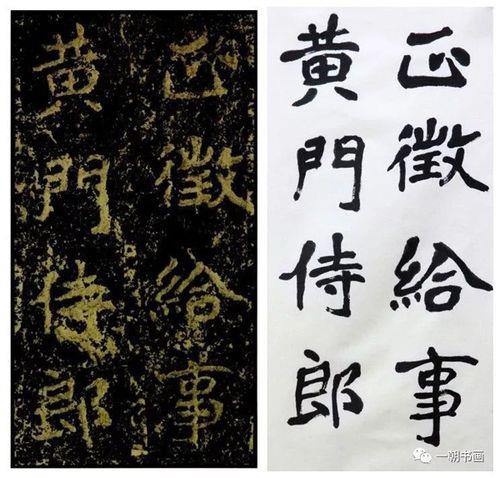 正徵給事
黄門侍郎
正徵給事
黄門侍郎
一朝书画